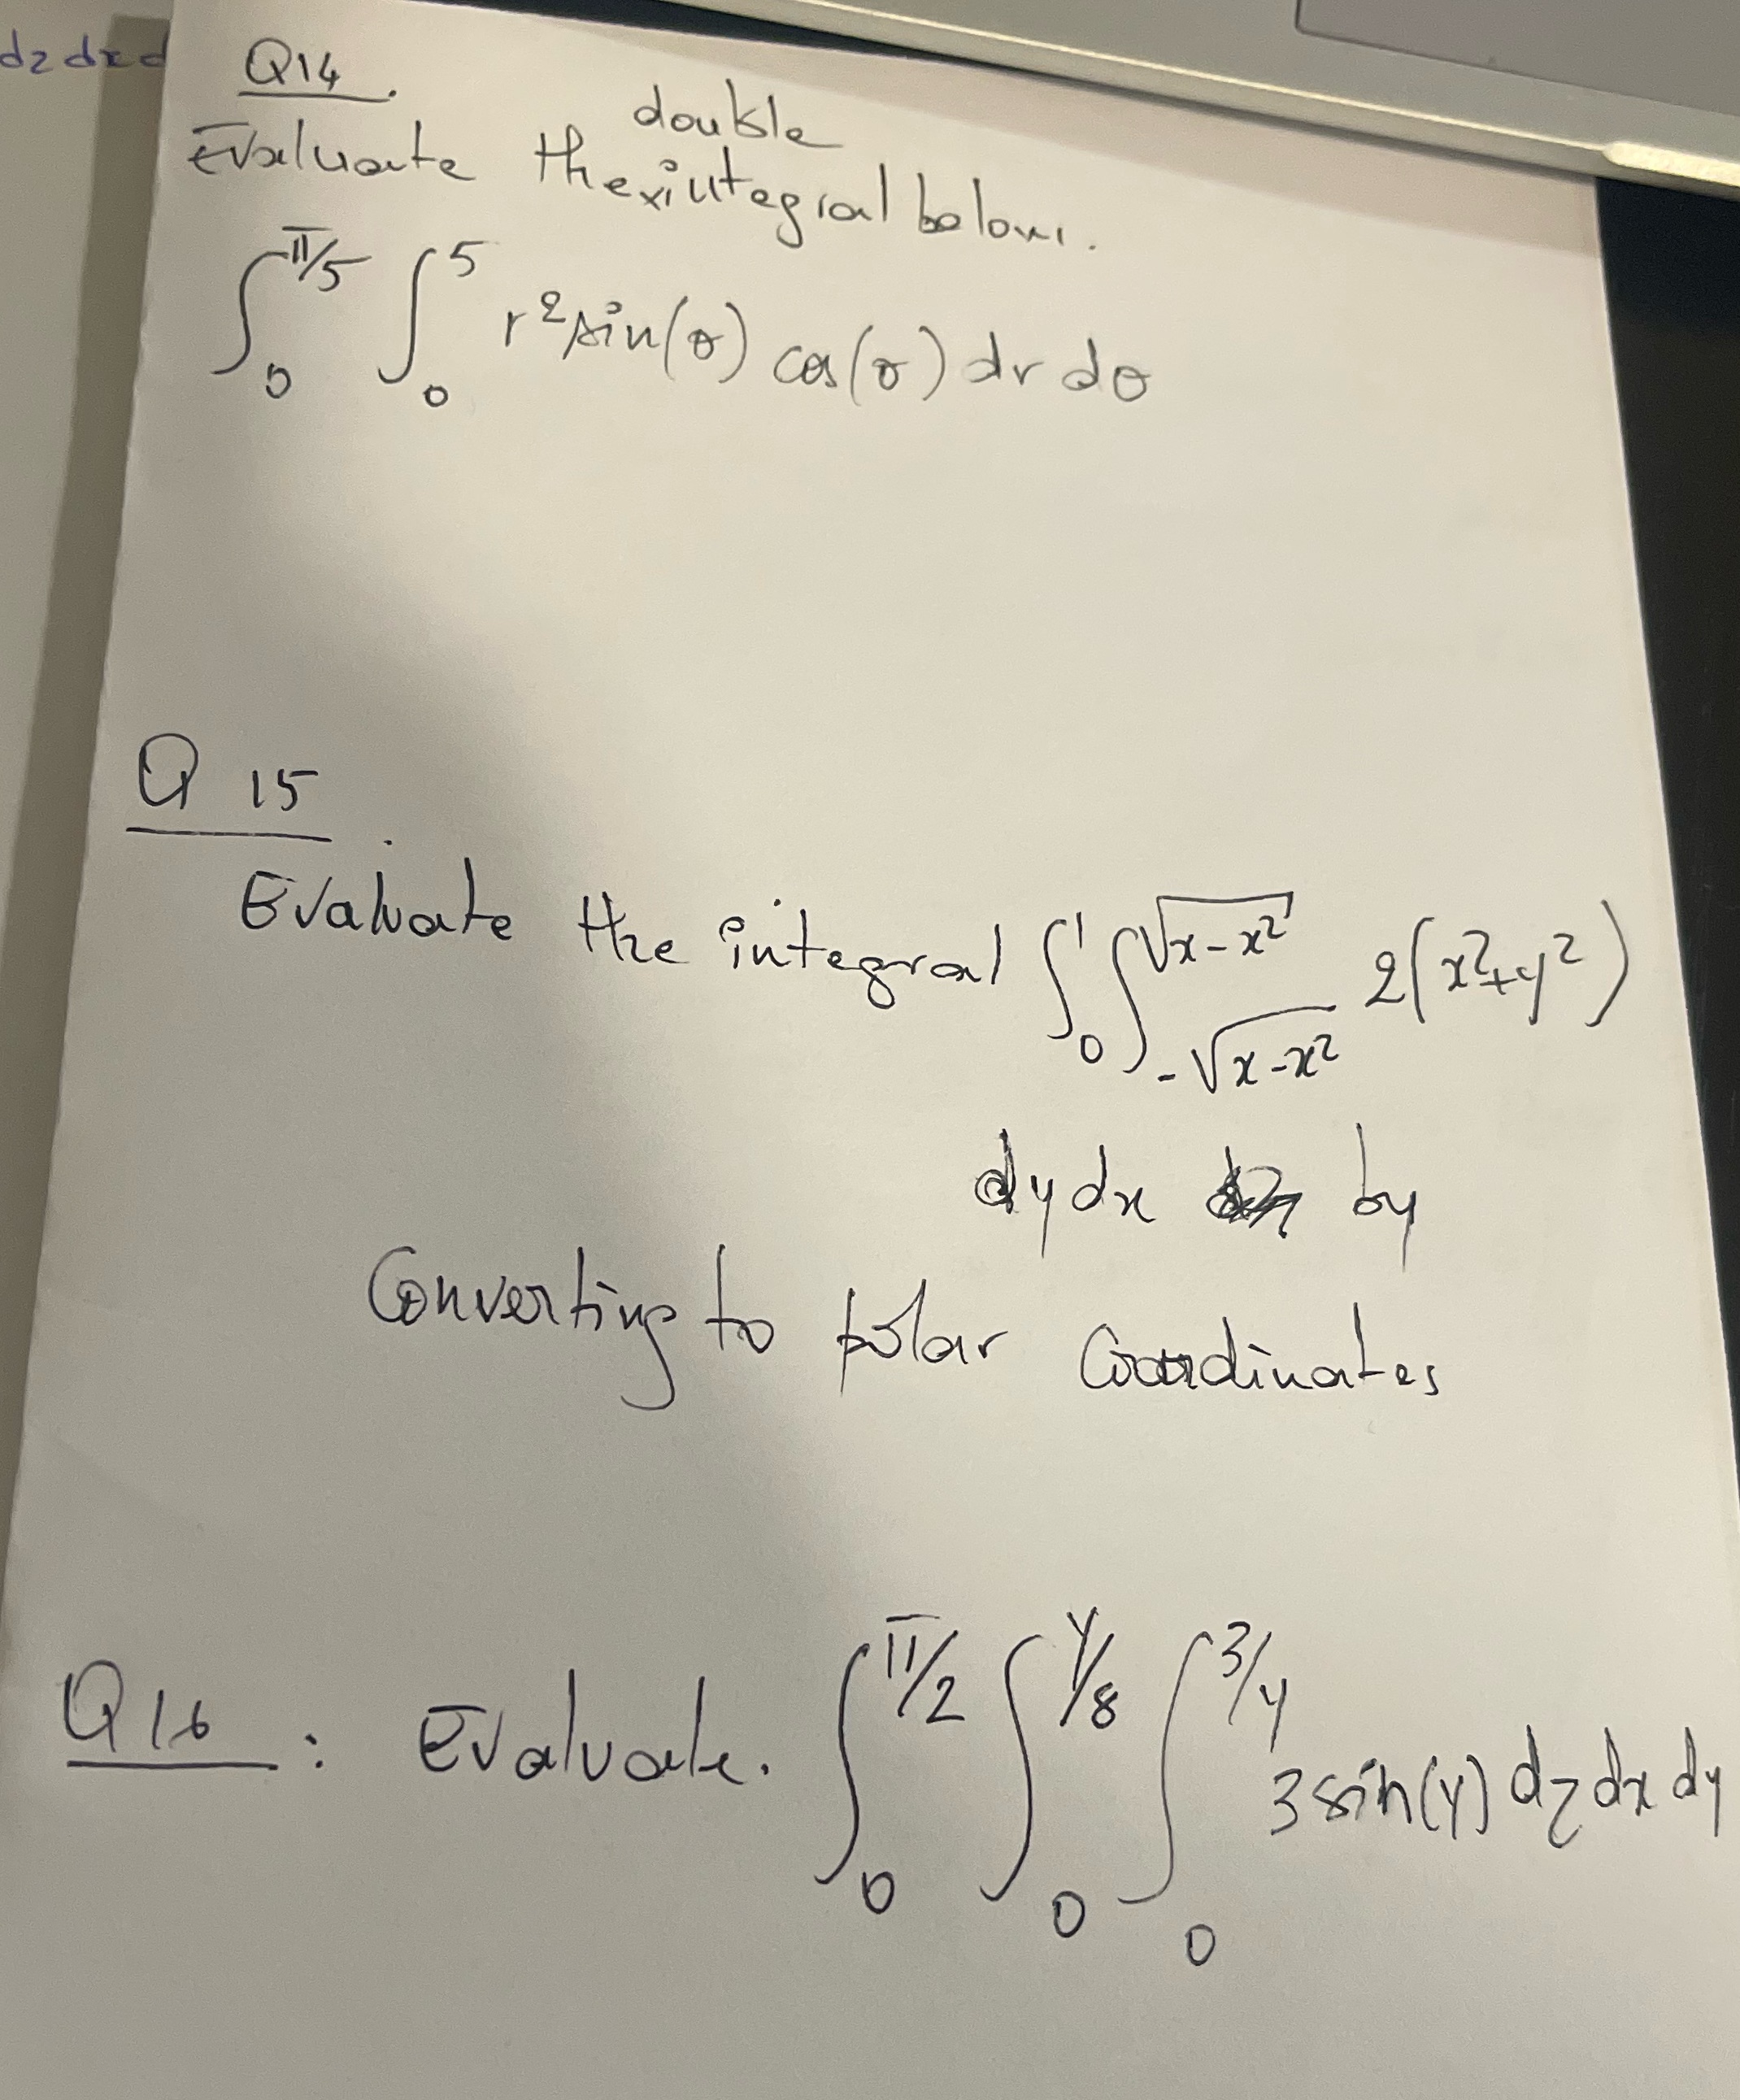 dz dx d
Q14.
double
Evaluate the x integral below.
∫_0^{π/5} ∫_0^5 r² sin(θ) cos(θ) dr dθ
Q 15.
Evaluate the integral ∫_0^1 ∫_{-√(x-x²)}^{√(x-x²)} 2(x²+y²)
dy dx by
Converting to polar Coordinates
Q16: Evaluate. ∫_0^{π/2} ∫_0^{y/8} ∫_0^{3/y} 3 sin(y) dz dx dy